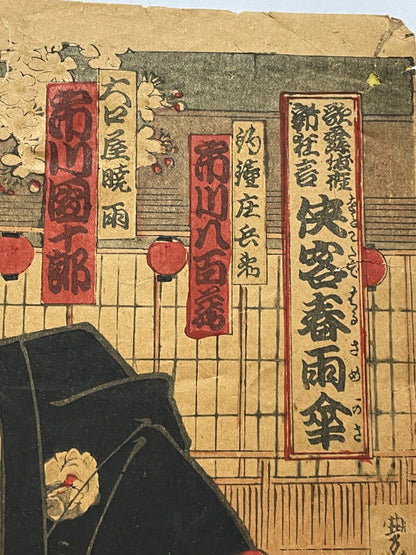 歌舞伎座
新狂言
侠客春雨傘
をとこだてはるさめがさ
釣鐘庄兵衛
市川八百蔵
大口屋暁雨
市川團十郎